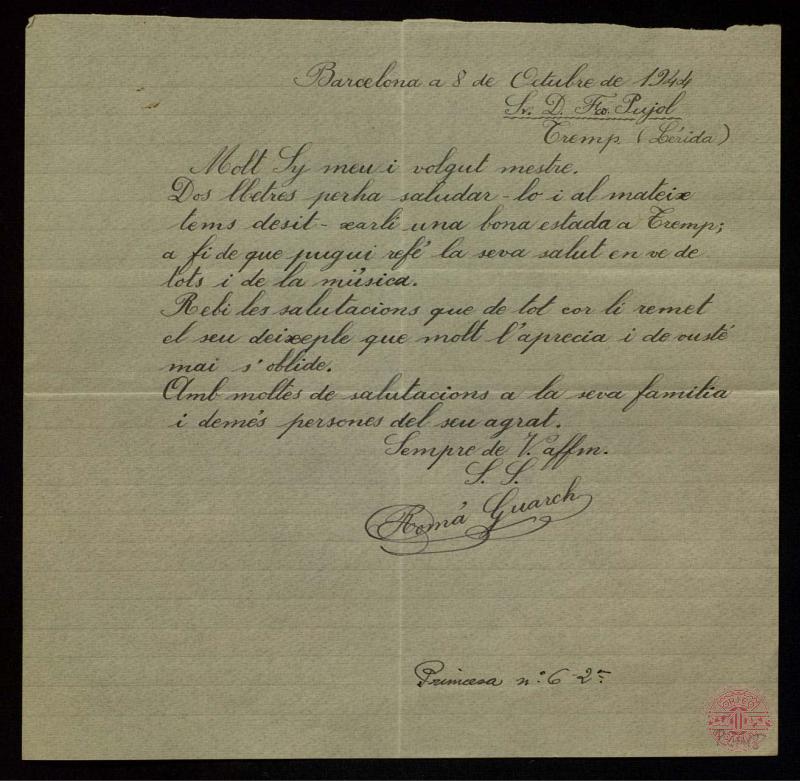 Barcelona a 8 de Octubre de 1944
Sr. D. Fco. Pujol
Tremp (Lérida)
Molt Sy meu i volgut mestre.
Dos lletres perha saludar-lo i al mateix
tems desit-xarli una bona estada a Tremp;
a fi de que pugui refé la seva salut en ve de
tots i de la música.
Rebi les salutacions que de tot cor li remet
el seu deixeple que molt l'aprecia i de vusté
mai s'oblide.
Amb moltes de salutacions a la seva familia
i demés persones del seu agrat.
Sempre de V. affm.
S. S.
Romá Guarch
Princesa nº 6 2ⁿ
ORFEÓ